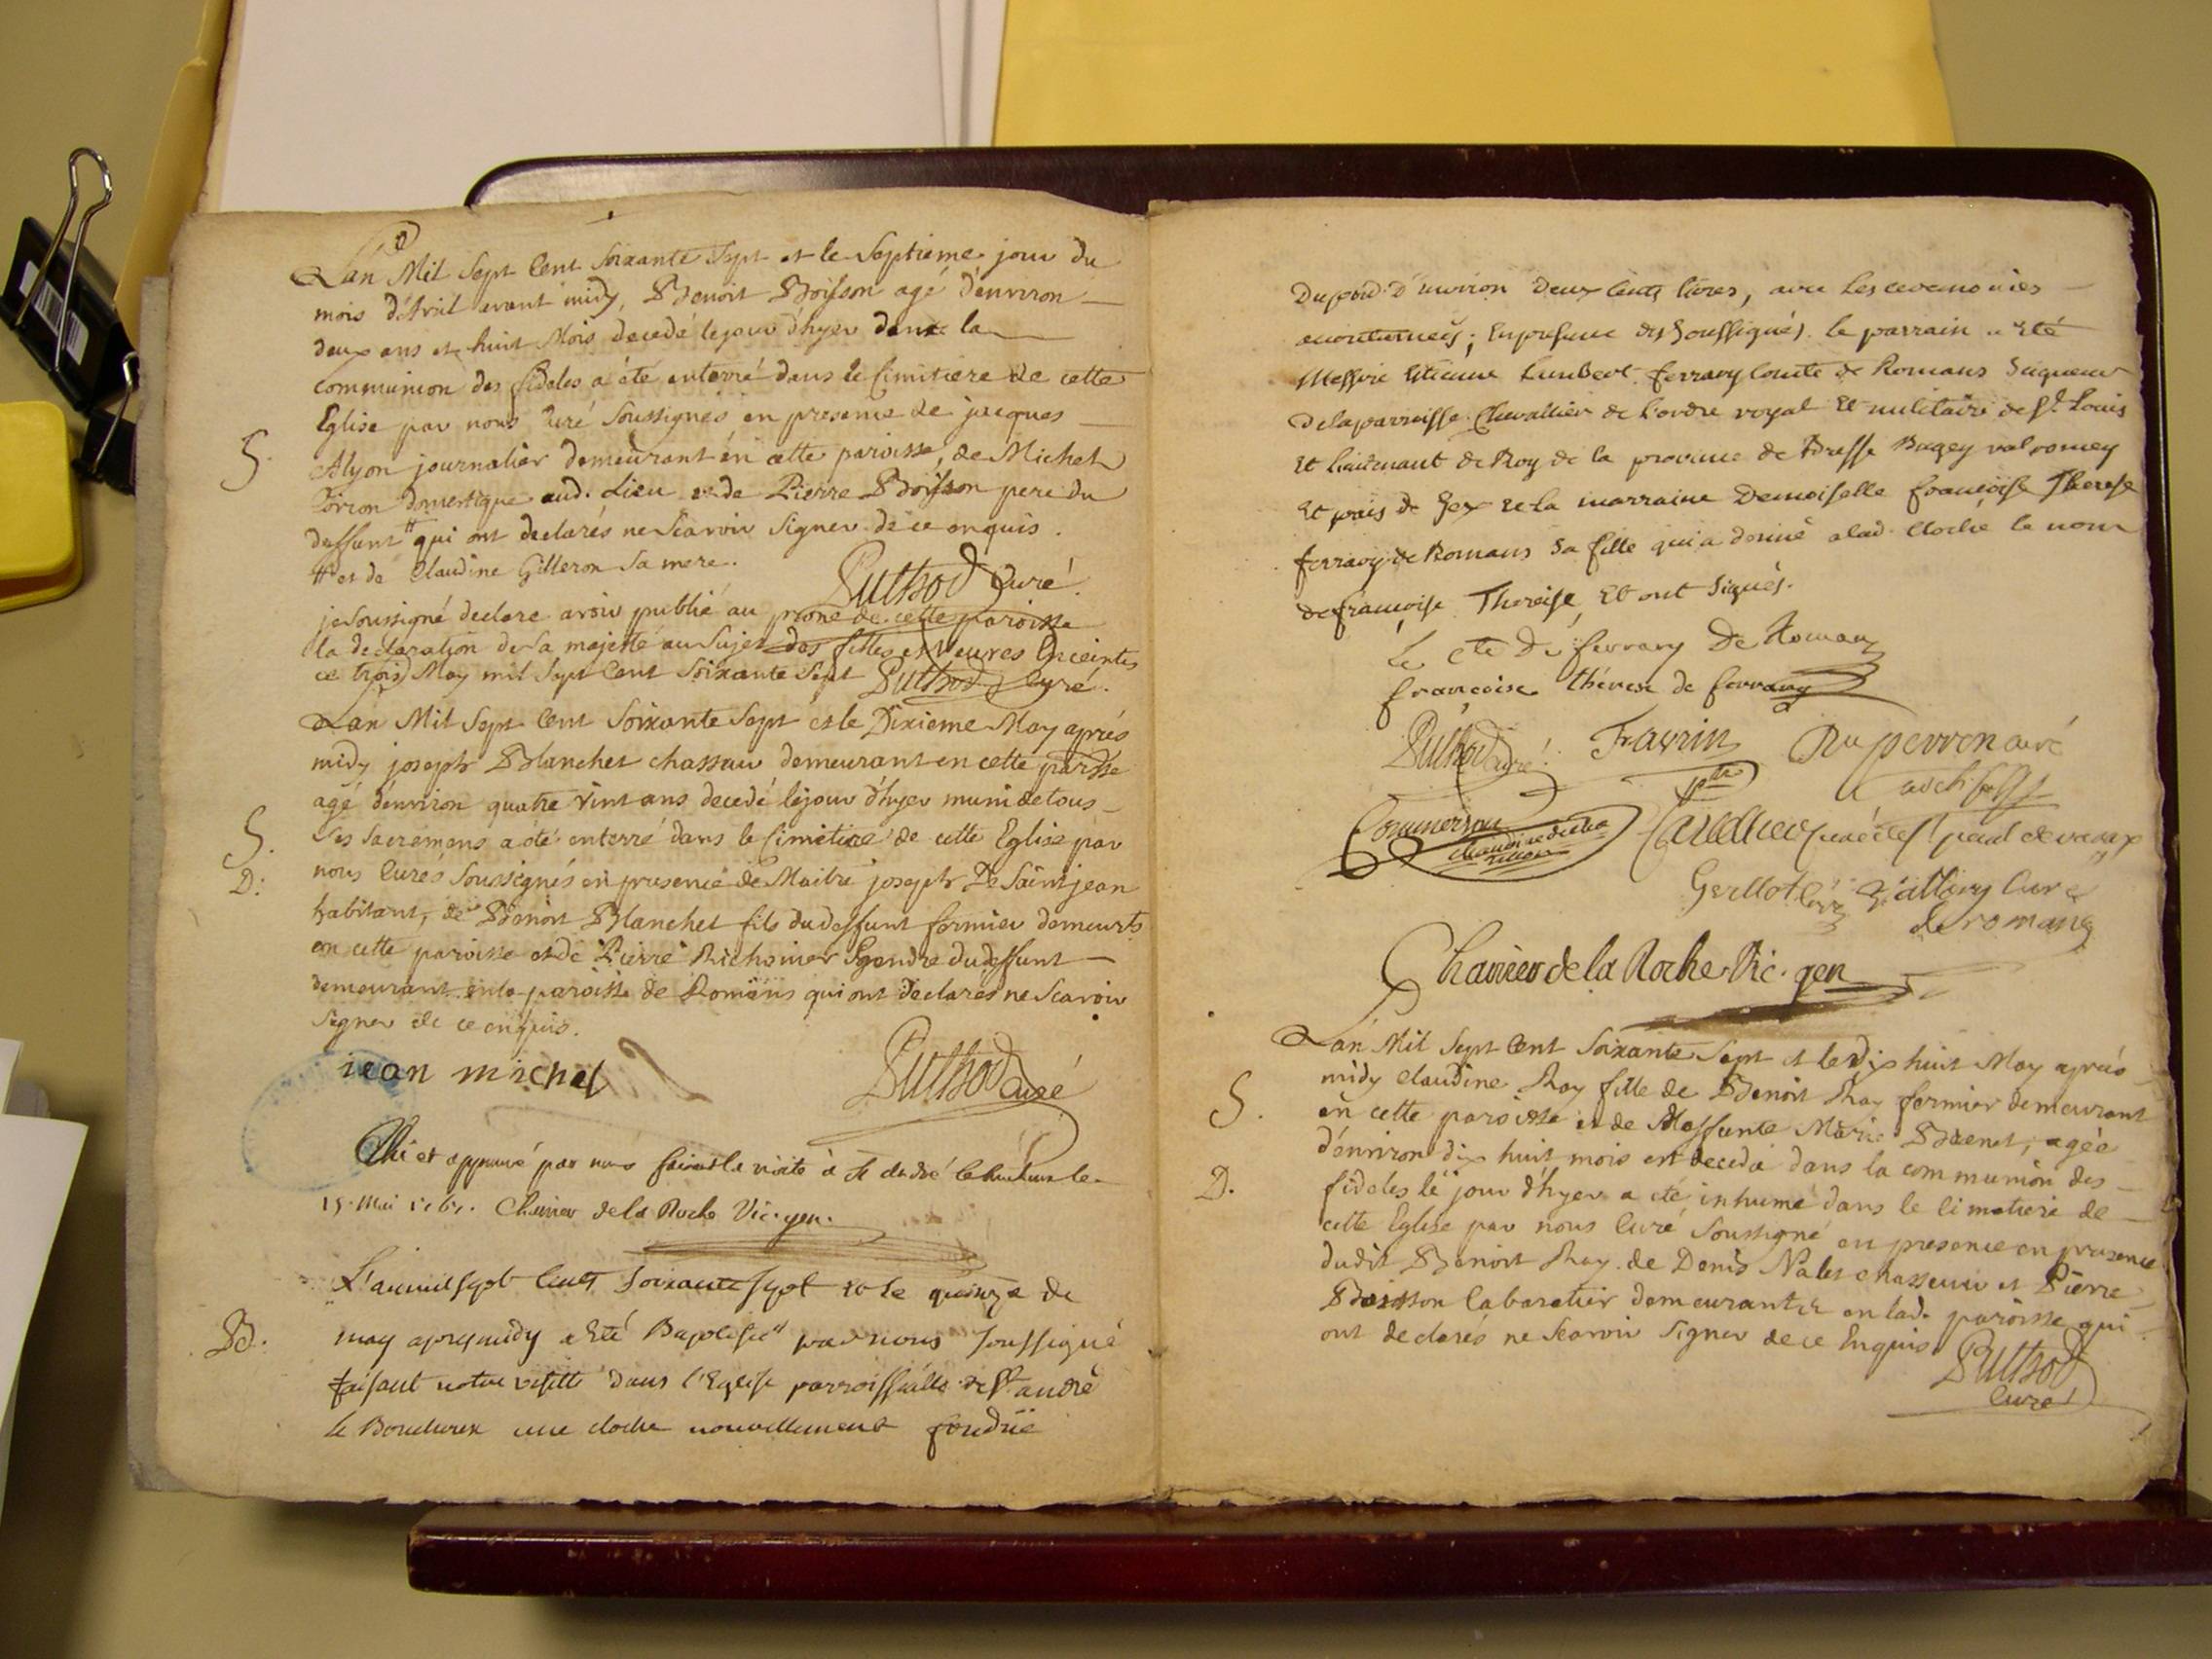 Lan Mil Sept Cent Soixante Sept et le Septieme jour du
mois d'Avril avant midy, Benoit Boisson agé d'environ
deux ans et huit Mois decedé lejour d'hyer dans la
communion des fideles a été enterré dans le Cimitiere de cette
Eglise par nous Curé Soussignés en presence de jacques
S.
Alyon journalier demeurant en cette paroisse, de Michel
domestique aud. Lieu et de Pierre Boisson pere du
deffunt # qui ont declarés ne Scavoir Signer de ce enquis.
# et de Claudine Gilleron Sa mere.
Puthod Curé.
je Soussigné declare avoir publié au prone de cette paroisse
la declaration de Sa majesté au Sujet des filles et Veuves Enceintes
ce trois May mil Sept Cent Soixante Sept Puthod Curé.
Lan Mil Sept Cent Soixante Sept et le Dixieme May aprés
midy joseph Blanchet chasseur demeurant en cette paroisse
agé d'environ quatre vint ans decedé lejour d'hyer muni de tous
S.
Ses Sacremens a été enterré dans le Cimetiere de cette Eglise par
D.
nous Curés Soussignés en presence de Maitre joseph De Saint jean
habitant, de Benoit Blanchet fils du deffunt fermier demeurts
en cette paroisse et de Pierre Richonier gendre du deffunt
demeurant en la paroisse de Romans qui ont declarés ne Scavoir
Signer de ce enquis.
iean michel
Puthod Curé
Vû et approuvé par nous faisant la visite à St André le
15. Mai 1767. Charrier de la Roche Vic. gen.
L'an mil sept Cents Soixante sept et le quinze de
Bd.
may apres midy a Eté Baptisée par nous Soussigné
faisant notre visitte dans l'Eglise parroissialle de St andré
le Bouchoux une cloche nouvellement fondüe
Du poid d'environ deux Cents livres, avec les ceremonies
accoutumées; En presence des Soussignés. le parrain a Eté
Messire Etienne Lambert ferrary Comte de Romans Seigneur
de la parroisse Chevallier de l'ordre royal Et militaire de St. Louis
Et Lieutenant de Roy de la province de Bresse Bugey valromey
Et païs de Gex et la marraine Demoiselle françoise Therese
ferrary de Romans Sa fille qui a donné a lad. Cloche le nom
de françoise Therese, Et ont Signés.
Le cte De ferrary De Romans
françoise thérese de ferrary
Puthod curé. Favrin Duperron curé
ptre archi
Commerson curé de St paul de varax
Gerllot curé
de romans
Charrier de la Roche Vic. gen
Lan Mil Sept Cent Soixante Sept et le Dix huit May aprés
midy Claudine Ray fille de Benoit Ray fermier demeurant
S.
en cette paroisse et de deffunte Marie, agée
d'environ dix huit mois est decedé dans la communion des
D.
fideles le jour d'hyer a été inhumé dans le Cimetiere de
cette Eglise par nous Curé Soussigné en presence en presence
dudit Benoit Ray. de Denis Nalet chasseur et Pierre
Boisson Cabaretier demeurants en lad. paroisse qui
ont declarés ne Scavoir Signer de ce Enquis
Puthod
Curé